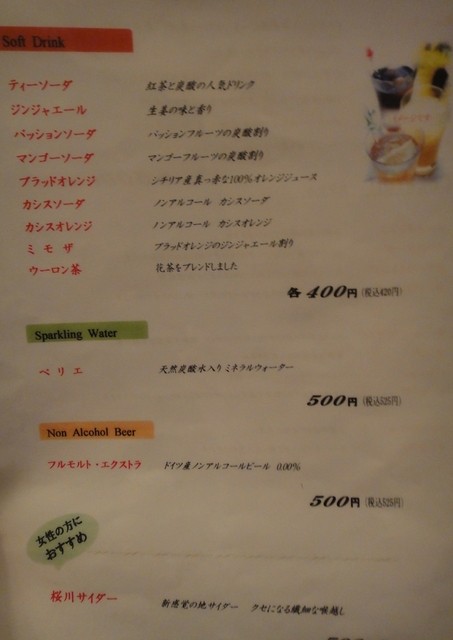 Soft Drink
ティーソーダ 紅茶と炭酸の人気ドリンク
ジンジャエール 生姜の味と香り
パッションソーダ パッションフルーツの炭酸割り
マンゴーソーダ マンゴーフルーツの炭酸割り
ブラッドオレンジ シチリア産真っ赤な100%オレンジジュース
カシスソーダ ノンアルコール カシスソーダ
カシスオレンジ ノンアルコール カシスオレンジ
ミモザ ブラッドオレンジのジンジャエール割り
ウーロン茶 花茶をブレンドしました
各 400円 (税込420円)
Sparkling Water
ペリエ 天然炭酸水入りミネラルウォーター
500円 (税込525円)
Non Alcohol Beer
フルモルト・エクストラ ドイツ産ノンアルコールビール 0.00%
500円 (税込525円)
女性の方に
おすすめ
桜川サイダー 新感覚の地サイダー クセになる繊細な喉越し